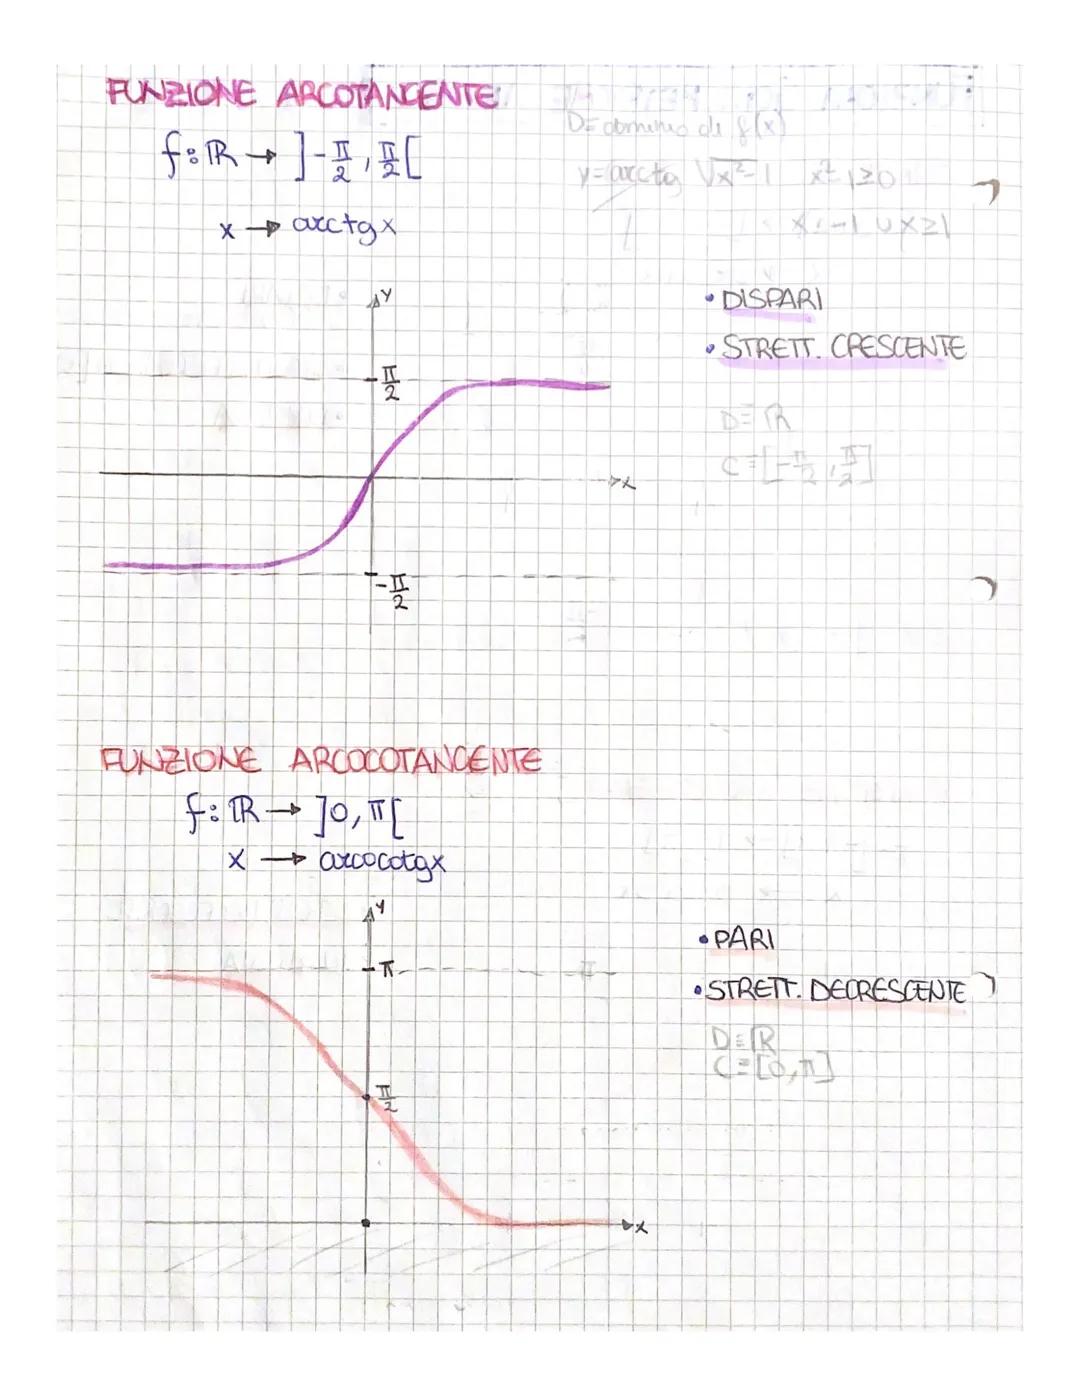 FUNZIONE ARCOTANGENTE
f: ℝ → ]-π/2, π/2[
x → arctgx
D= dominio di f(x)
y=arctg √x²-1 x²-1≥0
x≤-1 ∪ x≥1
y
• DISPARI
• STRETT. CRESCENTE
π/2
D=ℝ
C=[-π/2, π/2]
x
-π/2
FUNZIONE ARCOCOTANGENTE
f: ℝ → ]0, π[
x → arcocotgx
y
• PARI
π
• STRETT. DECRESCENTE
D=ℝ
C=[0, π]
π/2
x